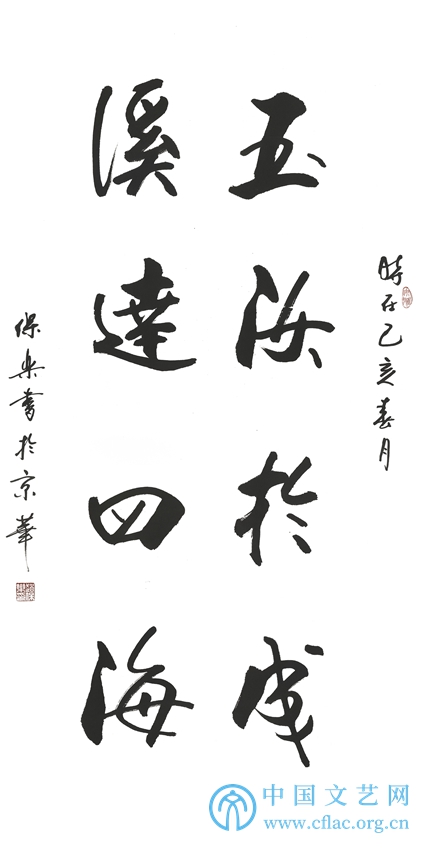 時在己亥春月
玉汝於成
溪達四海
保樂書於京華
中国文艺网
www.cflac.org.cn